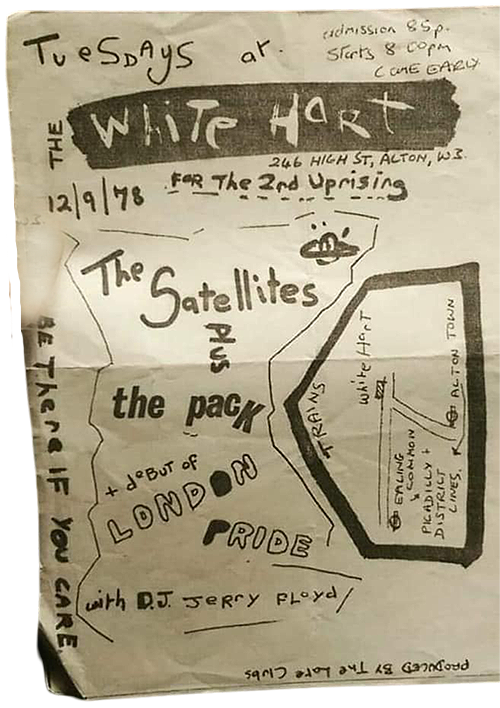 TUeSDAYS at.
admission 85p.
Starts 8:00pm
COME EARLY
THE
White Hart
246 HIGH ST, ALTON, W3.
12/9/78 FOR The 2nd Uprising
The Satellites
plus
the pack
+ deBUT OF
LONDON
PRIDE
with D.J. Jerry Floyd
BE THere IF YOU CARE
TRAINS
White Hart
ALTON TOWN
EALING
COMMON
PICADILLY +
DISTRICT
LINES.
PRODUCED BY The Clubs